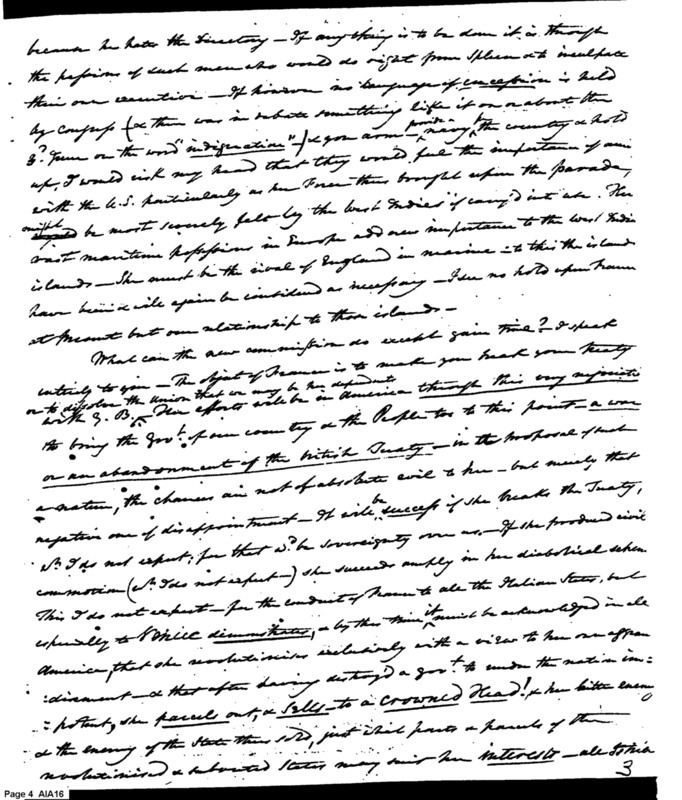 because he hates the Directory — If any thing is to be done it is through
the passions of such men who would do right from Spleen & to inculpate
their own executive — If however no language of concession is held
by Congress (& there was in debate something like it on or about the
3d. June on the word "indignation") & you arm — provide a navy & the country & hold
up, I would risk my head that they would feel the importance of
with the U.S. particularly as her Force thus brought upon the parade,
might be most severely felt by the West Indies if carry'd into use. Her
vast maritime possessions in Europe add new importance to the West India
islands — She must be the rival of England in marine — to this the islands
have been & will again be considered as necessary — I see no hold upon France
at present but our relationship to those islands —
What can the new commission do except gain time? — I speak
entirely to you — The object of France is to make you break your Treaty
or to dissolve the Union that we may be her dependents
with G. B. — Her efforts will be in America through this very
to bring the Govt. of our country & the People too to this point — a war
or an abandonment of the british Treaty — in the proposal of such
a nature, the chances are not of absolute evil to her — but merely that
negative one of disappointment — It will be success if she breaks the Treaty,
wh. I do not expect; for that wd. be sovereignty over us. — If she produced civil
commotion (wh. I do not expect —) she succeeds amply in her diabolical scheme
This I do not expect — for the conduct of France to all the Italian States, but
especially to Venice demonstrates, & by this time it must be acknowledged in all
America, that she revolutionises exclusively with a view to her own
— & that after having destroy'd a govt. to render the nation im=
=potent, she parcels out, & sells — to a crowned Head! & her bitter enemy
& the enemy of the State thus sold, just which parts & parcels of the
revolutionised & subverted States may suit her interests — all
3
Page 4 AIA16